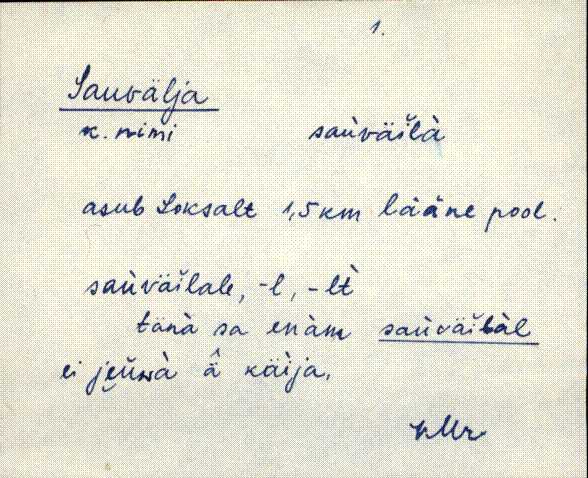 1.
Sauvälja
k. nimi saùväĭlà
asub Loksalt 1,5 km lääne pool.
saùväĭlale, -l, -lt̀
tänà sa enàm saùväĭlàl
ei jeùwà â käìja.